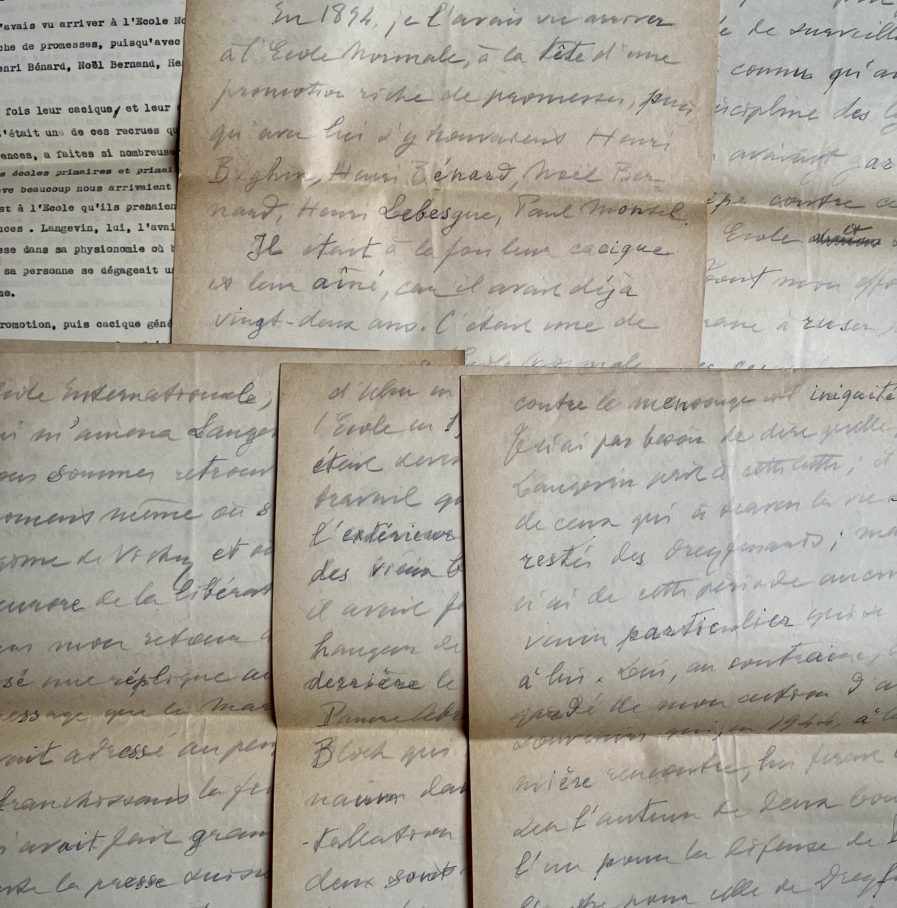 'avais vu arriver à l'Ecole No
che de promesses, puisqu'avec
enri Bénard, Noël Bernand, He
fois leur cacique, et leur
'était une de ces recrues qu
ences, a faites si nombreuse
s écoles primaires et primai
ve beaucoup nous arrivaient
st à l'Ecole qu'ils prehaien
nces . Langevin, lui, l'avai
sse dans sa physionomie où b
sa personne se dégageait u
me.
romotion, puis cacique géné
En 1894, je l'avais vu arriver
à l'Ecole Normale, à la tête d'une
promotion riche de promesses, puis
qu'avec lui s'y trouvaient Henri
Beghin, Henri Bénard, Noël Ber-
nard, Henri Lebesgue, Paul Montel.
Il était à la fois leur cacique
et leur aîné, car il avait déjà
vingt-deux ans. C'était une de
de surveill
connu qu'au
iscipline des ly
avaient gar
ipe contre ce
Ecole
tout mon effo
à ruser
cole Internationale,
ui m'amena Lange
ous sommes retrouv
moment même où s
gime de Vichy et
aurore de la libérat
mon retour
sé une réplique au
essage que le Mar
vait adressé au
franchissais la fe
avait fait gran
la presse suisse
d'Ulm
l'Ecole en
était deve
travail qu
l'extérieur
des vieux b
il avait f
hangar de
derrière le
Bloch qui
dan
-tallation
deux sont
contre le mensonge et iniquité
Je n'ai pas besoin de dire quelle
Langevin prit à cette lutte ; il
de ceux qui à travers la vie
restés des dreyfusards ; ma
n'ai de cette période aucun
venir particulier qui se
à lui. Lui, au contraire,
gardé de mon action d'a
souvenir qui, en 1944, à la
mière rencontre, lui firent
l'auteur de deux
l'un pour la défense de
l'autre pour celle de Dreyf